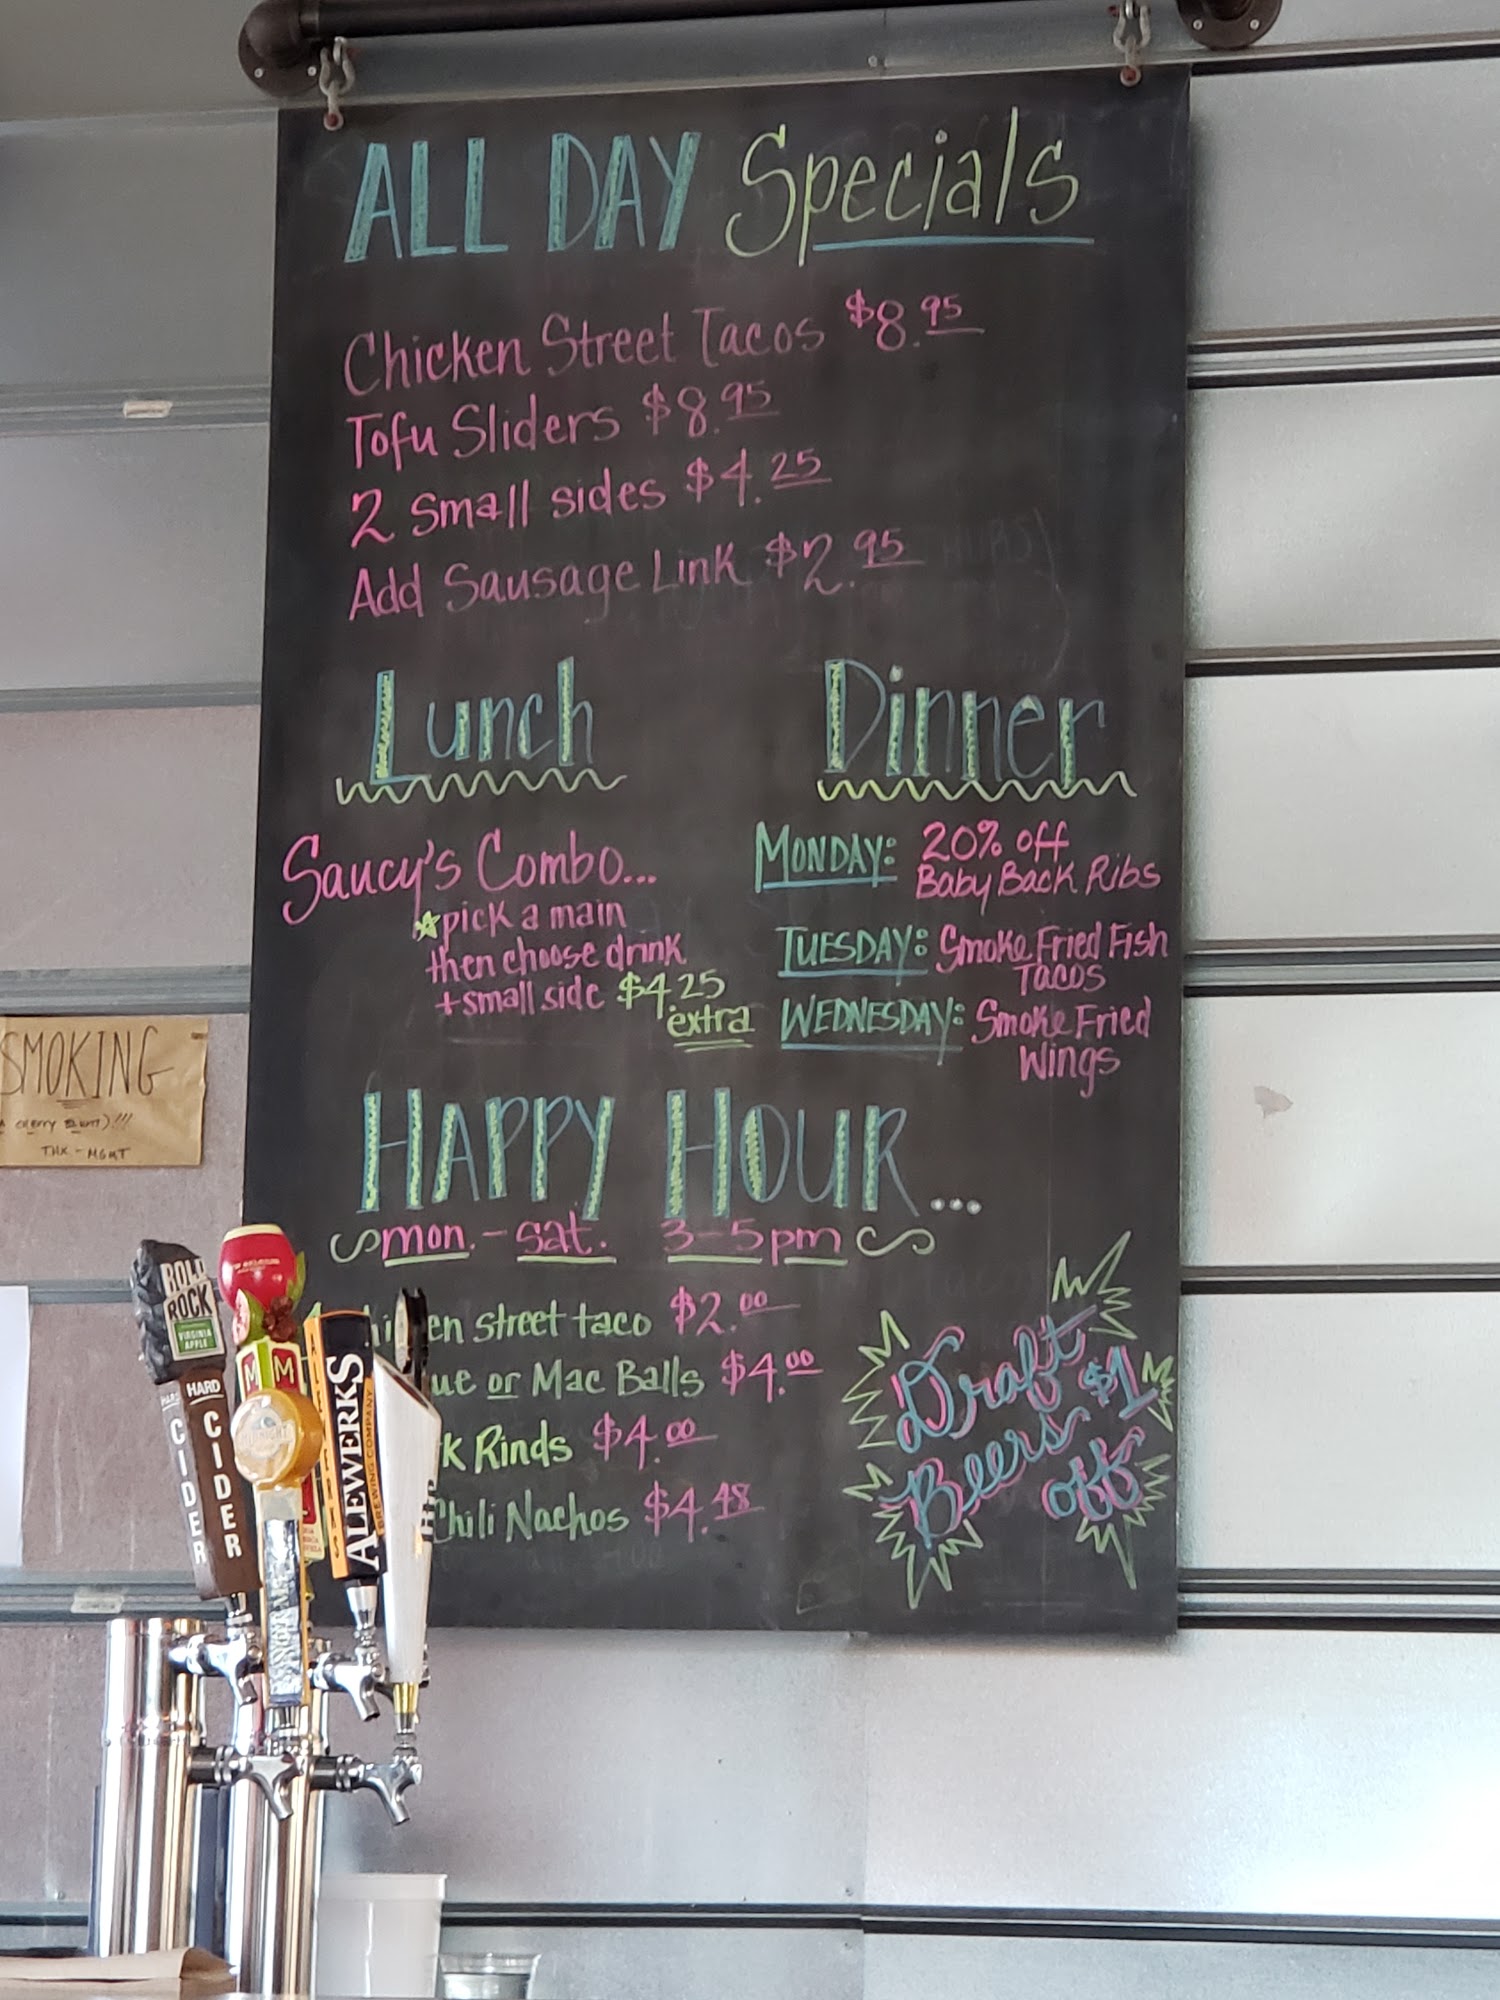 ALL DAY Specials
Chicken Street Tacos $8.95
Tofu Sliders $8.95
2 small sides $4.25
Add Sausage Link $2.95
Lunch
Saucy's Combo...
pick a main
then choose drink
+ small side $4.25
extra
Dinner
MONDAY: 20% off
Baby Back Ribs
TUESDAY: Smoke Fried Fish
Tacos
WEDNESDAY: Smoke Fried
Wings
HAPPY HOUR...
mon. - sat. 3-5pm
en street taco $2.00
ue or Mac Balls $4.00
k Rinds $4.00
Chili Nachos $4.48
Draft
Beers $1
off
SMOKING
THX - MGMT
BOLD
ROCK
VIRGINIA
APPLE
HARD
CIDER
HARD
CIDER
ALEWERKS
BREWING COMPANY